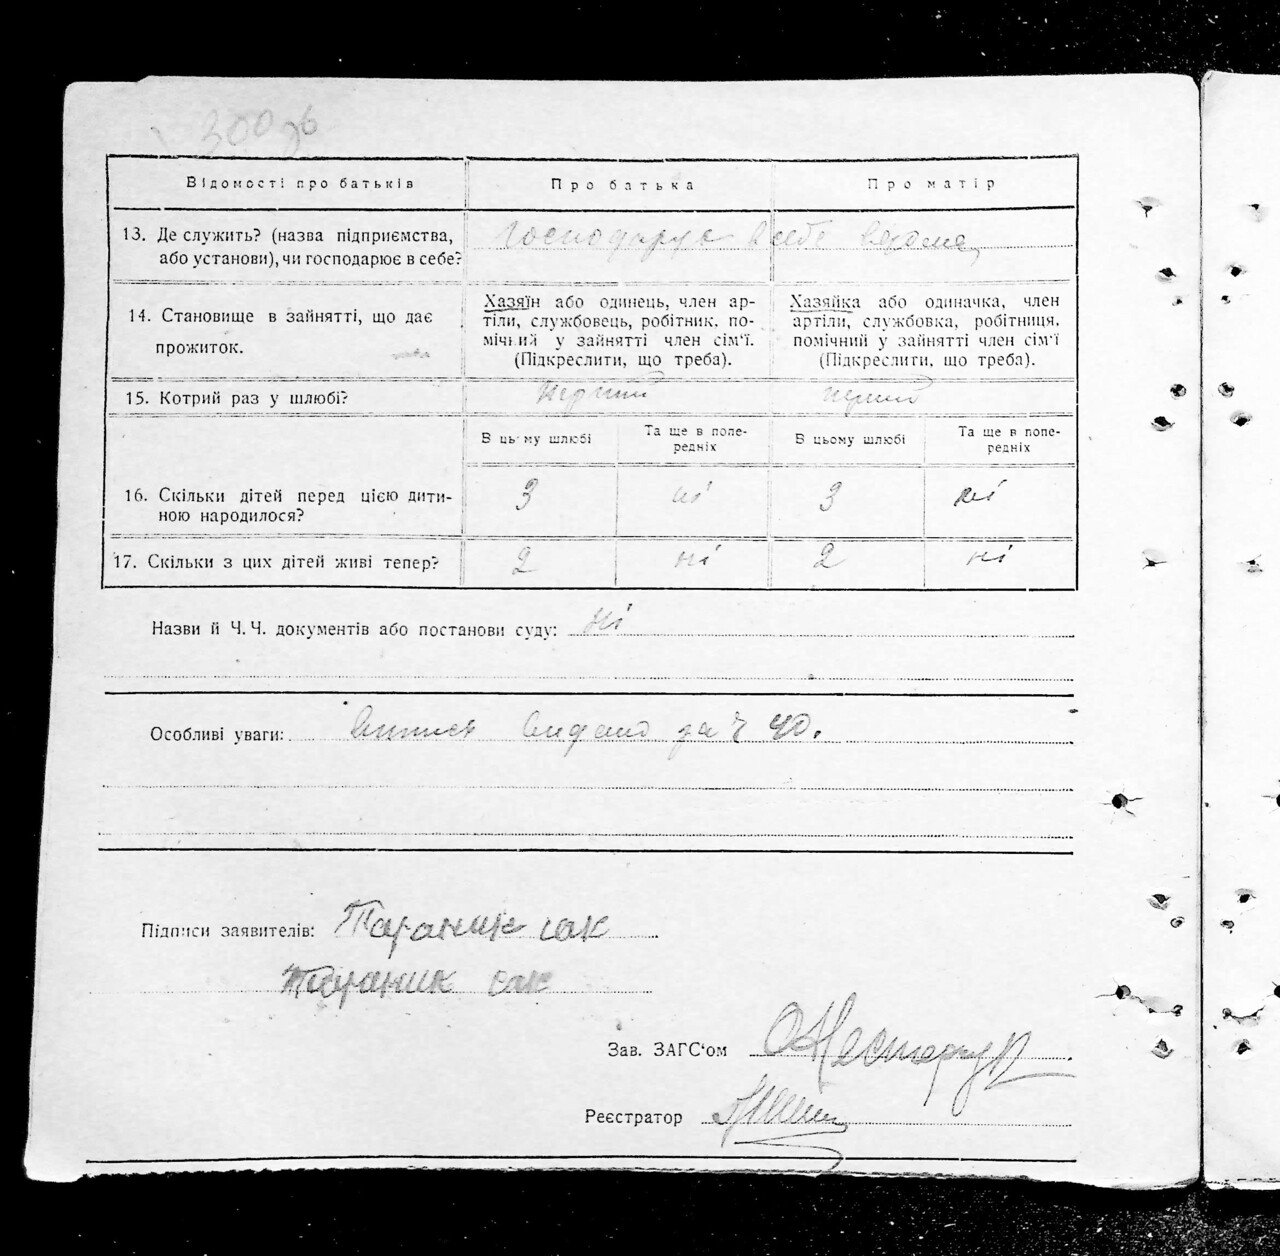 300 зв
Відомості про батьків Про батька Про матір
13. Де служить? (назва підприємства, або установи), чи господарює в себе? Господарує в себе вдома
14. Становище в зайнятті, що дає прожиток.
Хазяїн або одинець, член артіли, службовець, робітник, помічний у зайнятті член сім'ї. (Підкреслити, що треба).
Хазяйка або одиначка, член артіли, службовка, робітниця, помічний у зайнятті член сім'ї (Підкреслити, що треба).
15. Котрий раз у шлюбі? перший перший
В цьому шлюбі Та ще в попередніх В цьому шлюбі Та ще в попередніх
16. Скільки дітей перед цією дитиною народилося? 3 ні 3 ні
17. Скільки з цих дітей живі тепер? 2 ні 2 ні
Назви й Ч. Ч. документів або постанови суду: ні
Особливі уваги: Випись видано за ч 40.
Підписи заявителів: Тараник сак
Тараник сак
Зав. ЗАГС'ом
Реєстратор